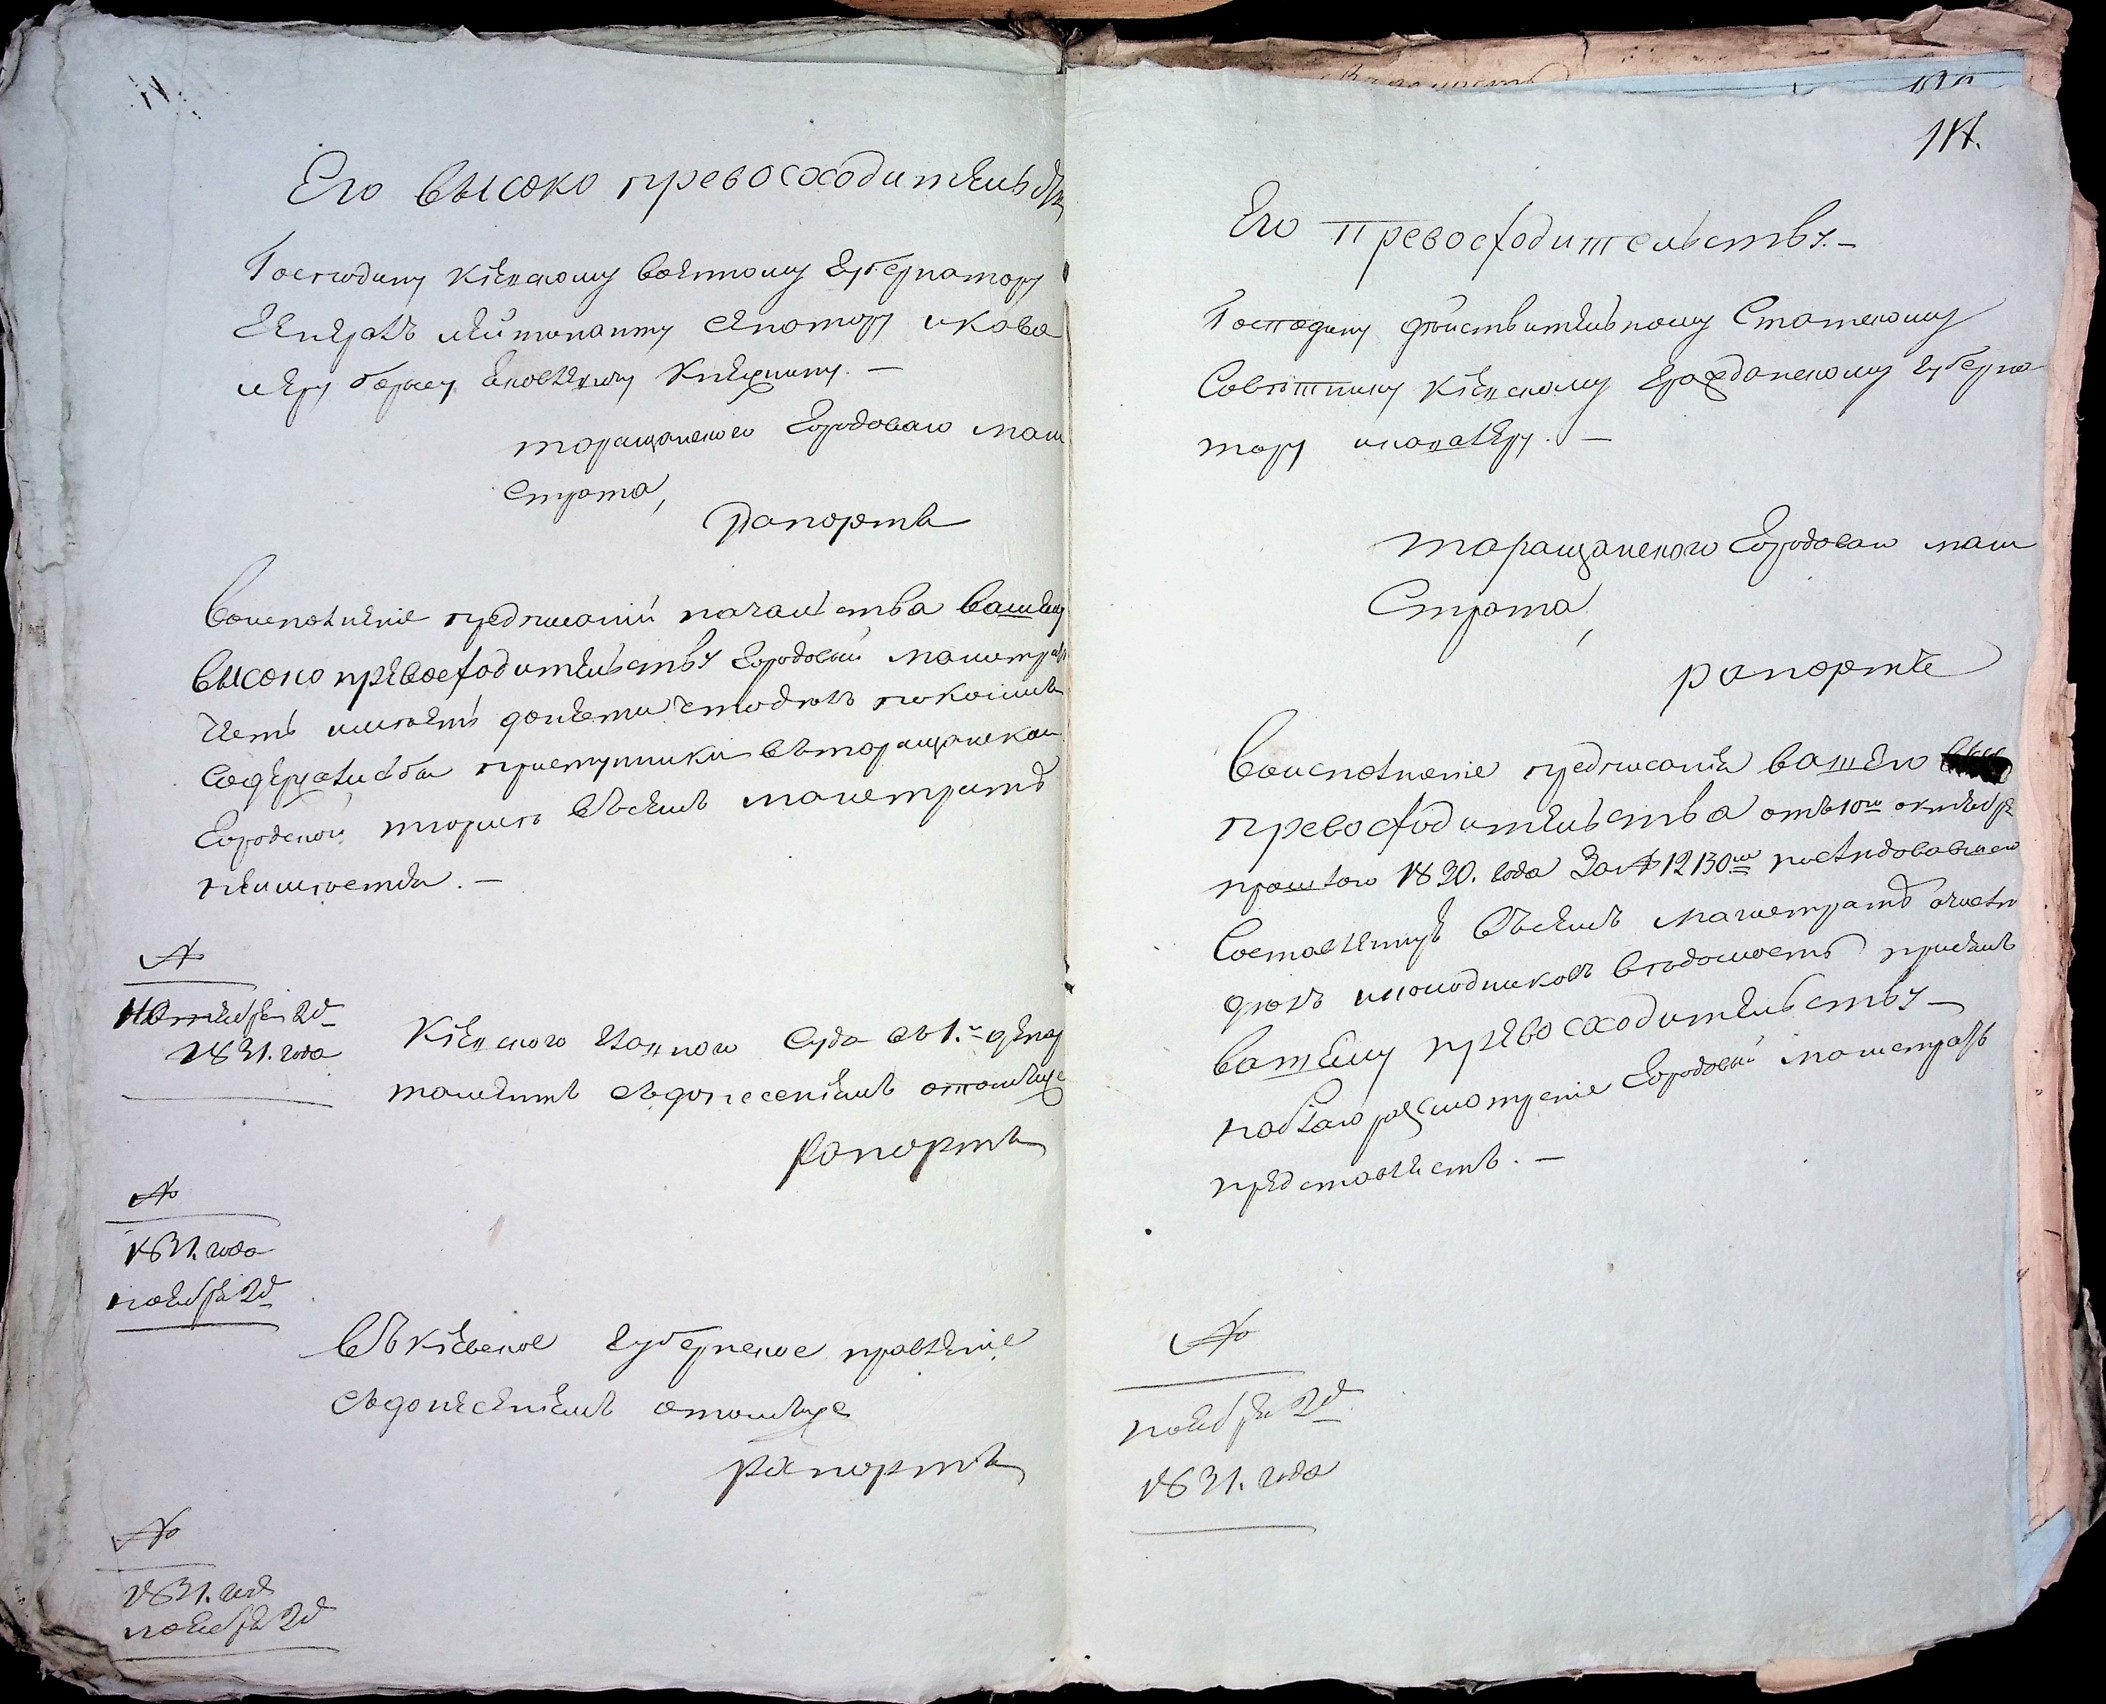 Его высоко превосходительству
Господину Кіевскому военному Губернатору
Генералъ лейтенанту сенатору и кава
леру борису яковлевичу Княжнину. —
таращанского Городоваго маги
Страта,
рапортъ
Воисполненіе предписаній начальства вашему
высоко превосходительству Городовый магистратъ
честь имеетъ донести что дѣлъ
Содержательства преступники въ таращанском
Городской тюрмѣ Въсемъ магистратѣ
неимѣется. —
№
Ноября 2д
1831. года
Кіевского Главного Суда въ 1.й депар
таментъ съ донесеніемъ отомъже
рапортъ
№
1831. года
ноября 2д
Въ Кіевское Губернское правленіе
съ донесеніемъ отомъже
рапортъ
№
1831. год
ноября 2д
114.
Его Превосходительству. —
Господину дѣйствительному Статскому
Совѣтнику Кіевскому Гражданскому Губерна
тору и кавалеру. —
таращанского Городоваго маги
Страта,
рапортъ
Воисполненіе предписанія вашего
превосходительства отъ 10го октября
прошлаго 1830. года За № 12130м последовавшаго
Составленную Въсемъ магистратѣ о числѣ
дѣлъ и колодниковъ вѣдомость присемъ
вашему превосходительству —
на благоразсмотреніе Городовый магистратъ
представляетъ. —
№
ноября 2д
1831. года